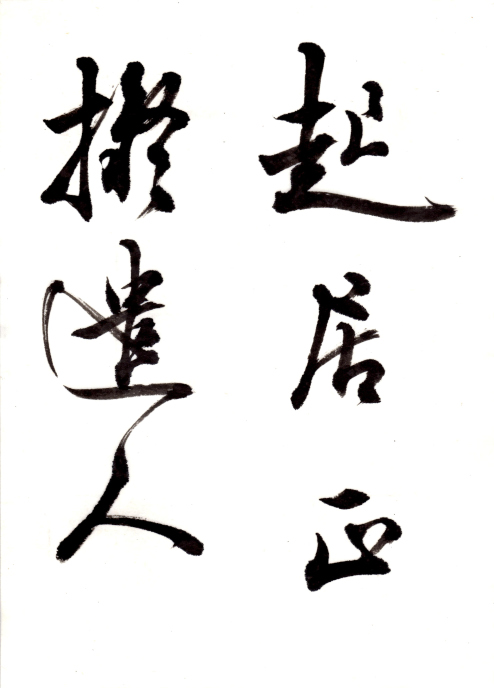 起居正
擬遣人